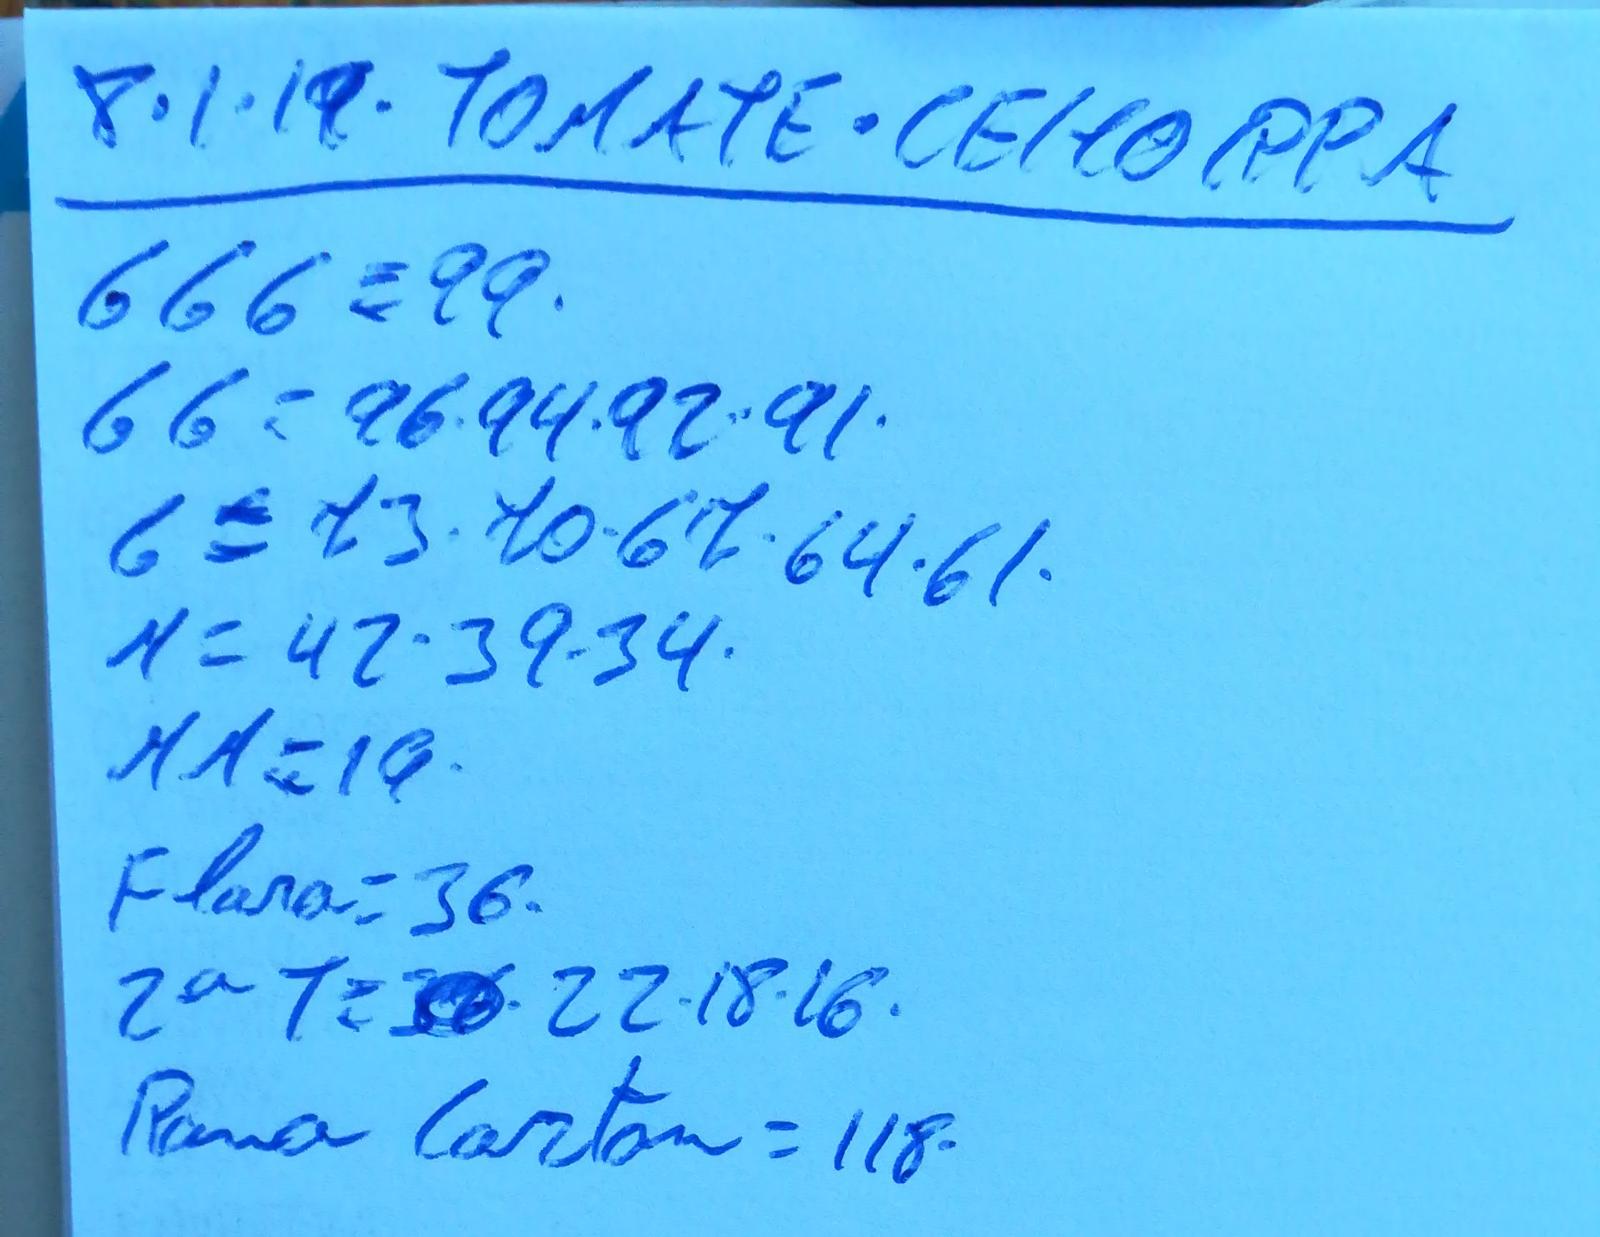 8.1.19. TOMATE. CEHORPPA
666 = 99.
66 = 96.94.92.91.
6 = 73.70.67.64.61.
M = 42.39.34.
MM = 19.
Flora = 36.
2ª T = 22.18.16.
Rama Carton = 118.